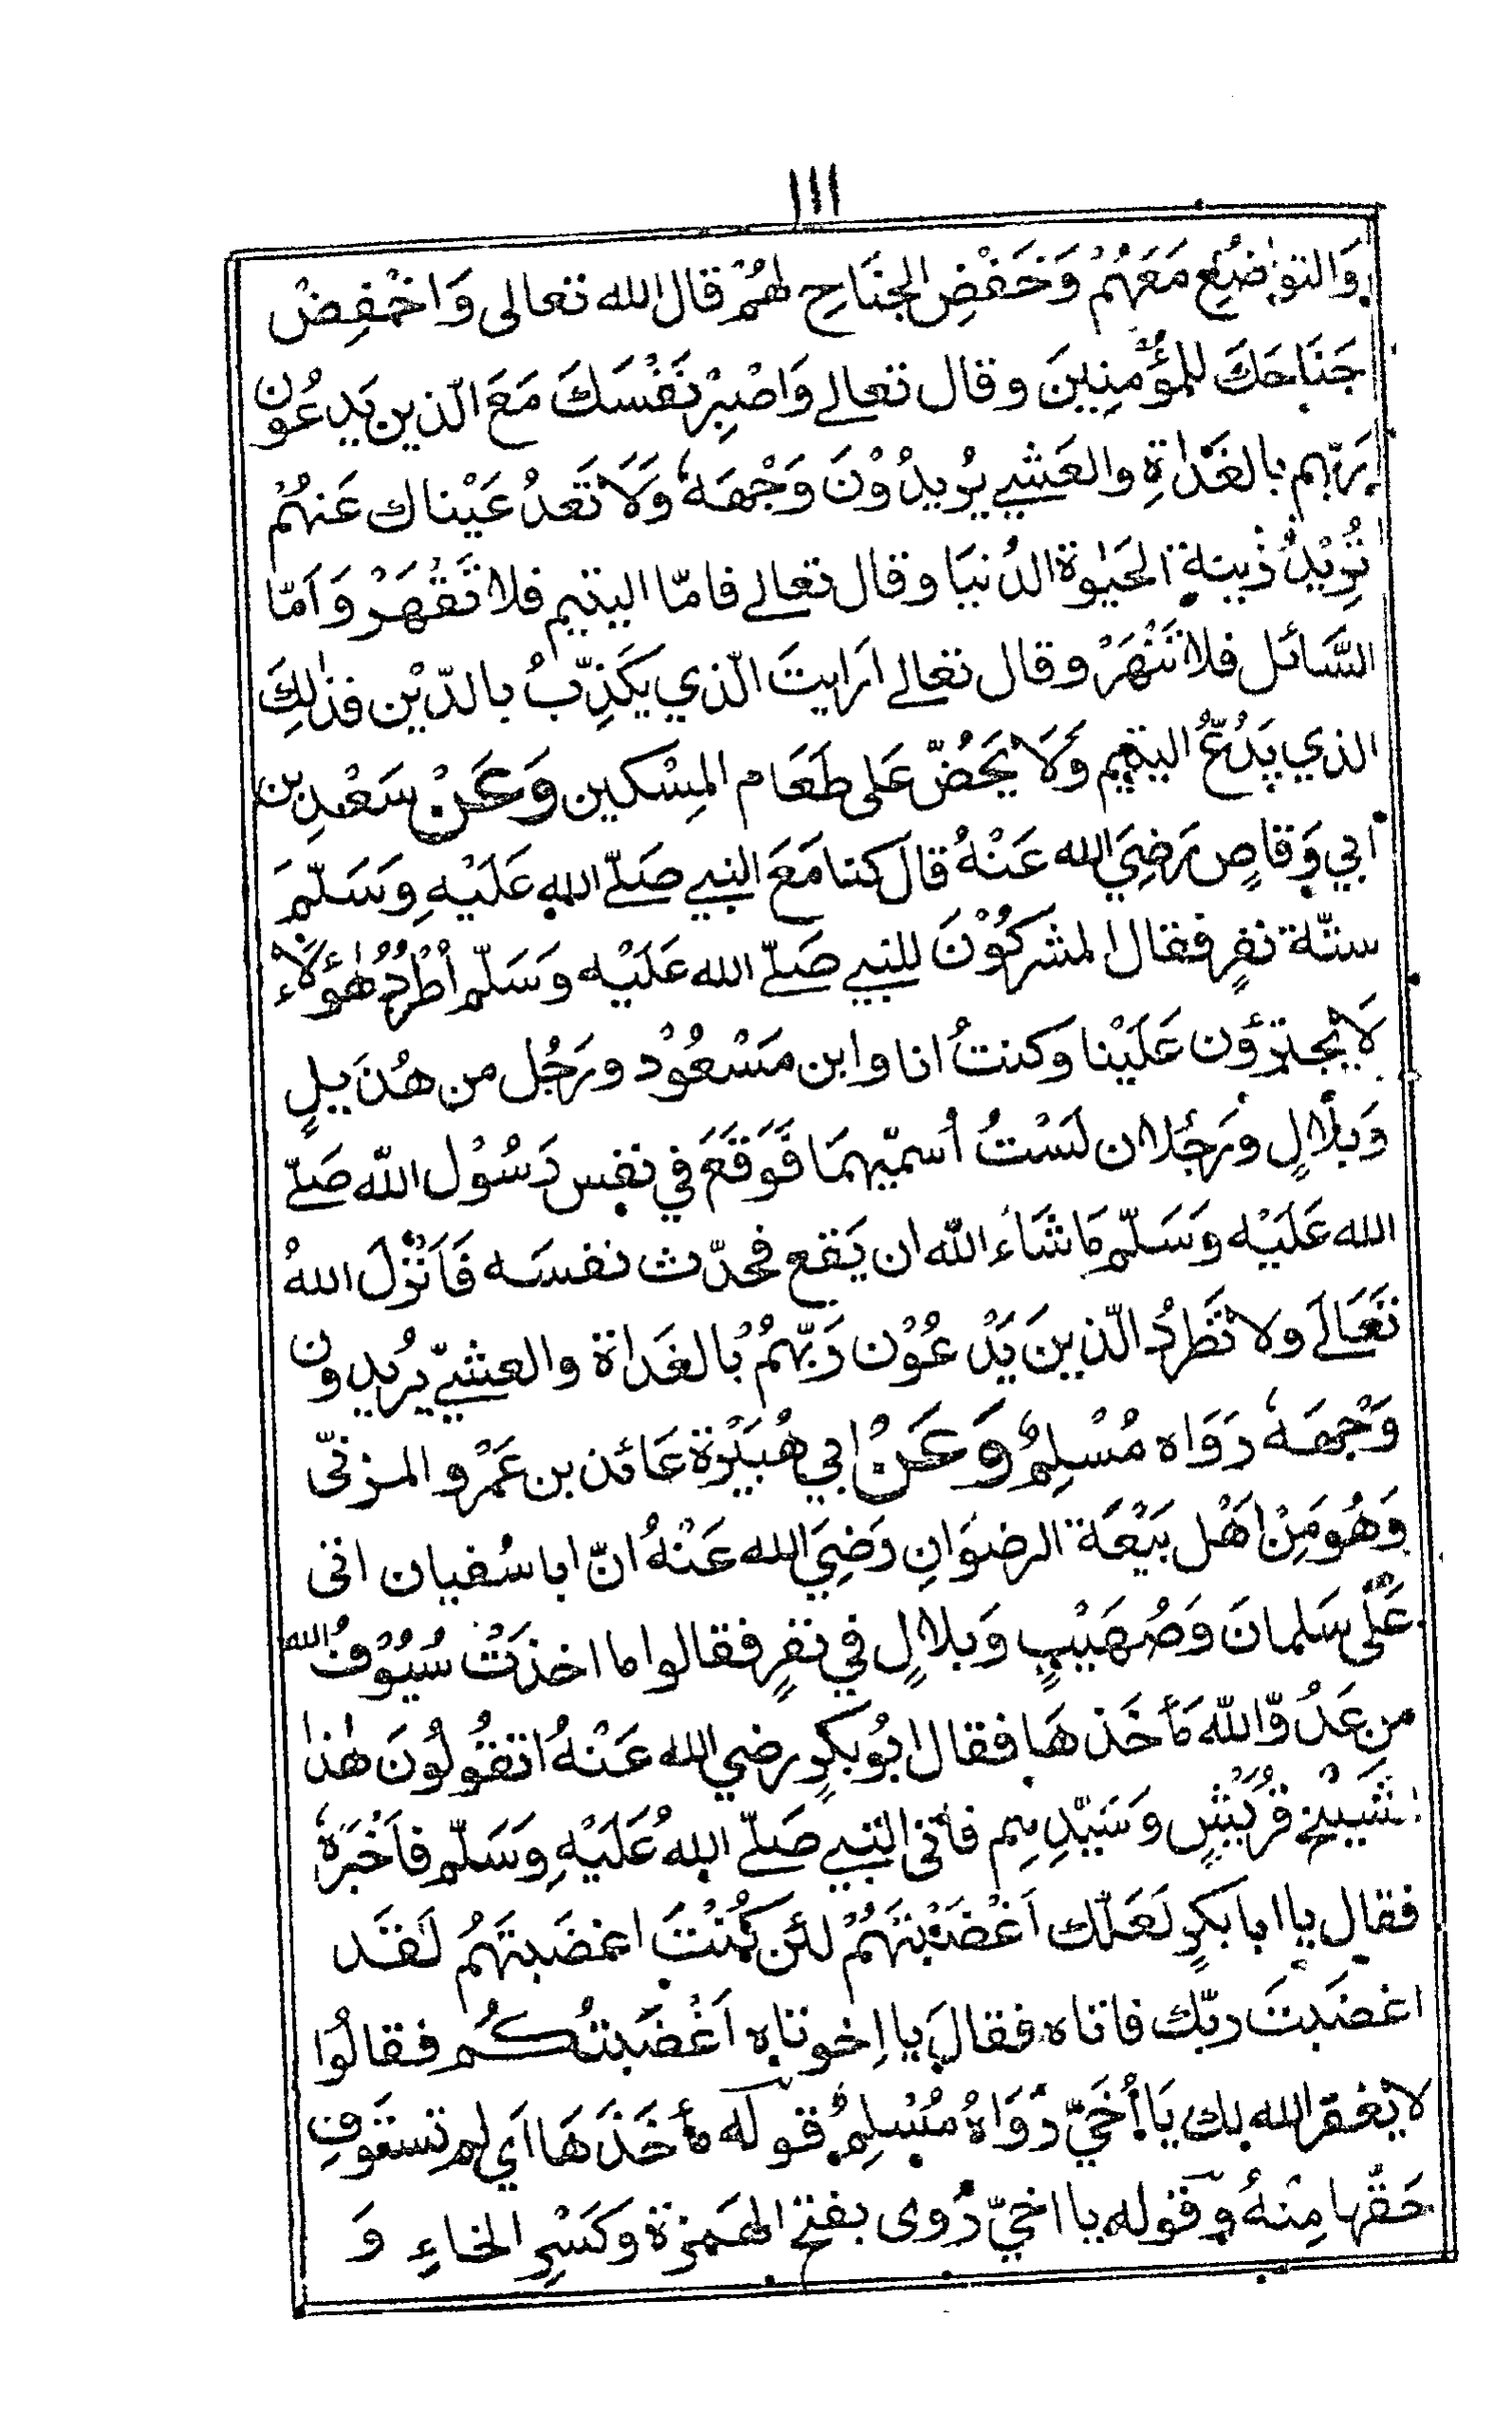 ١١١
وَالتوٰضُعِ مَعَهُمْ وَخَفْضِ الجنَاحِ لهُمْ قال الله تعالى وَاخْفِضْ
جَنَاحَكَ لِلْمُؤْمِنِينَ وقال تعالے وَاصْبِرْ نَفْسَكَ مَعَ الّذين يَدعُون
رَبّهم بالغَدٰاةِ والعَشےِ يُرِيدُوْنَ وَجْهَهٗ وَلَا تَعدُ عَيْناك عَنهُمْ
تُرِيْدُ زِينة الحَيٰوة الدُنيَا وقال تعالے فامّا اليتيم فلا تَقْهَرْ وَاَمّا
السَّائل فلا تَنْهَرْ وقال تعالے اَرَايتَ الّذي يكَذِّبُ بالدّيْن فذٰلِكَ
الذي يَدُعُّ اليتيم وَلَا يَحُضّ عَلى طَعَام المِسْكين وَعَنْ سَعْدِ بن
ابي وَقاصٍ رَضِيَ الله عَنْهُ قالَ كنا مَعَ النبي صَلّے الله عَلَيْهِ وَسَلّمَ
ستّة نفرٍ فقال المشركُوْنَ للنبي صَلّے الله عَلَيْه وَسَلّم اُطْرُدْ هٰؤلَاء
لَا يجترؤن عَلَيْنا وكنتُ انا وابن مَسْعُوْد ورَجُل من هُذَيلٍ
وَبلَالٍ ورَجُلان لَسْتُ اُسمّيهمَا فَوَقَعَ في نفس رَسُوْل اللّه صَلّے
الله عَلَيْه وَسَلّم مَا شَاءَ اللّه ان يَقع فحدّث نفسَه فَاَنْزَلَ اللهُ
تَعَالَے ولا تَطردُ الّذينَ يَدْعُوْن رَبّهُمْ بالغَدٰاة والعشيّ يُريدون
وَجْهَهٗ رَوَاه مُسْلِمٌ وَعَنْ ابي هُبَيْرَة عَائذ بن عَمْرو المزنيّ
وَهُوَ مِنْ اَهْل بَيْعَة الرضوَانِ رَضِيَ الله عَنْهُ انّ ابا سُفيان اتى
عَلٰى سَلمانَ وَصُهَيْبٍ وَبلالٍ في نفرٍ فقالوا ما اخذتْ سُيُوْفُ الله
من عَدُوّ اللّه مَأخَذهَا فقال ابُو بكرٍ رضي الله عَنْهُ اتقُولُونَ هٰذا
لشَيْخِ قُرَيْشٍ وَسَيّدِهِم فأتى النبي صَلّے اللهُ عَلَيْهِ وَسَلّم فاَخْبَرَهٗ
فقال يا ابا بكرٍ لَعَلّك اَغْضَبْتَهُمْ لئن كُنْتَ اغضَبتَهُمْ لَقَد
اغضَبتَ ربّك فاتاه فقالَ يا اِخوتاه اَغْضَبتُكُم فقالُوا
لا يَغفر الله لك يَا اُخَيّ رَوَاهُ مُسْلِمٌ قوله مأخَذَهَا اَي لم تستَوفِ
حَقّها مِنهُ وقوله يا اخيّ رُوى بفتح الهَمزة وكَسْرِ الخاءِ وَ